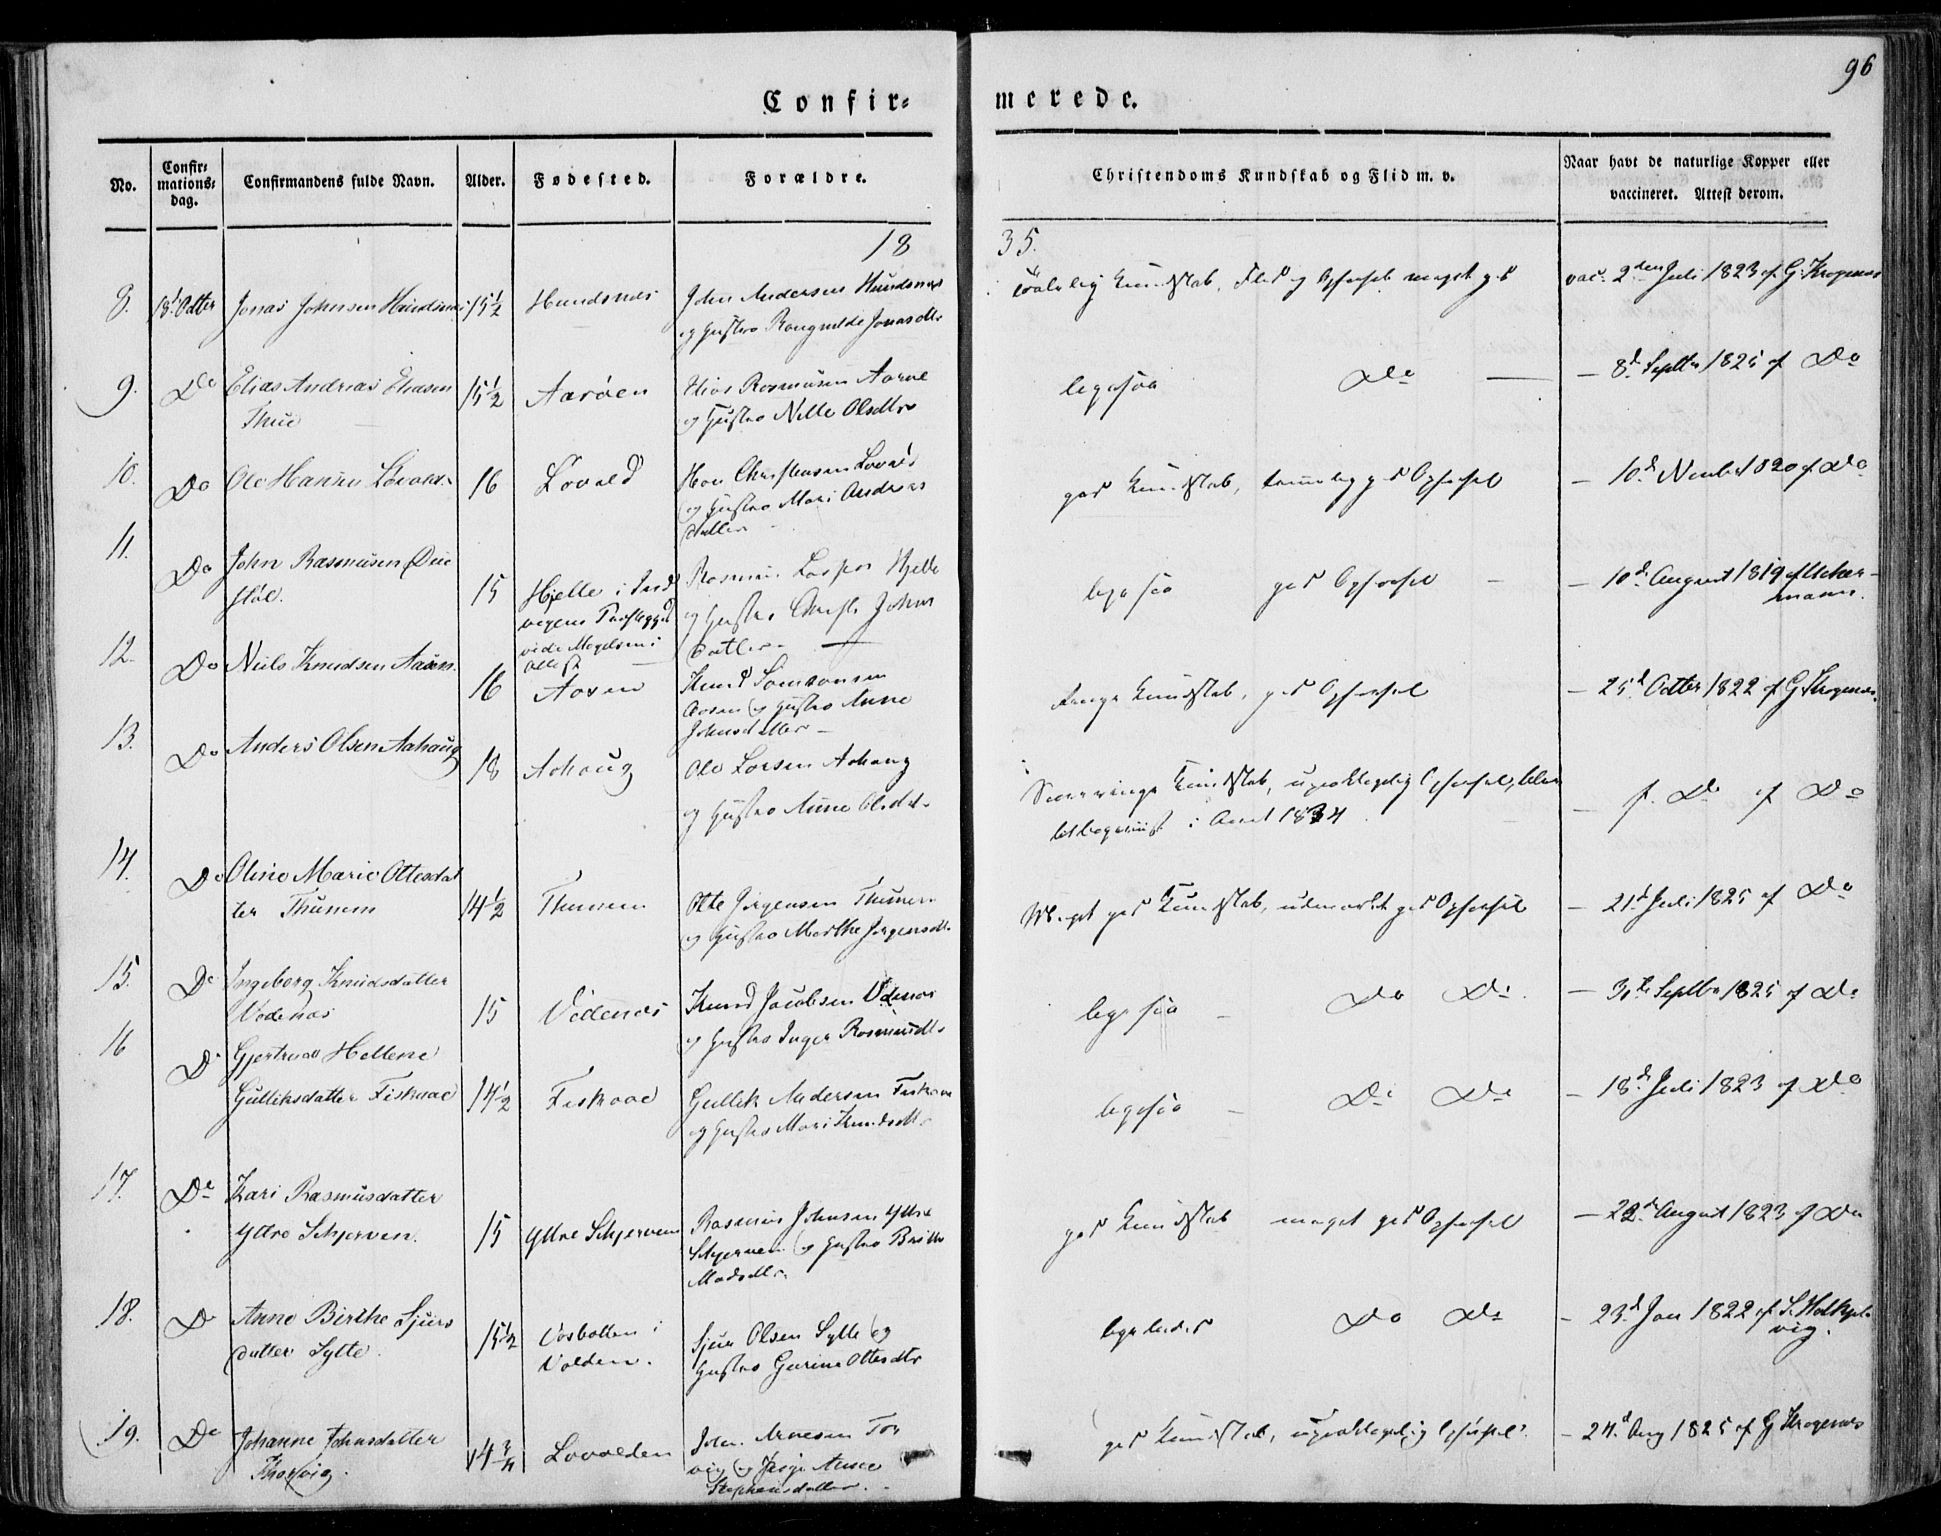 96
Confir-
merede.
No.
Confir-
mations-
dag.
Confirmandens fulde Navn.
Alder.
Fødested.
Forældre.
Christendoms Kundskab og Flid m. v.
Naar havt de naturlige Kopper eller
vaccineret. Attest derom.
18
35.
8. 18 Octbr Jonas Johnsen Hundsnes 15½ Hundsnes John Andersen Hundsnes
og Hustro Rangnilde Jonasdtr
Kundskab, Flid og Opførsel meget god
vac. 2den Juli 1823 af G. Krogenæs
9. Do Elias Andreas Eliasen
Thue
15½ Aarøen Elias Rasmusen Aarøe
og Hustro Nille Olsdtr
ligesaa Do
— 8d Septbr 1825 af Do
10. Do Ole Hansen Løvold 16 Løvold Hans Christensen Lovold
og Hustro Mari Andreas
datter
god Kundskab, temmelig god Opførsel
— 10d Novbr 1820 af Do
11. Do John Rasmusen
støl.
15 Hjelle i Ind
Rasmus Hjelle
og Hustro John
datter
ligesaa god Opførsel
— 10d August 1819 af
mann.
12. Do Niels Knudsen Aasen 16 Aasen Knud Samsonsen
Aasen og Hustro Anne
Johnsdatter
Kundskab, god Opførsel
— 25d Octbr 1822 af G Krogenæs
13. Do Anders Olsen Aahaug 18 Aahaug Ole Larsen Aahaug
og Hustro Anne Olsdtr
Kundskab, upaaklagelig Opførsel, blev
i Aaret 1834
— f. Do af Do
14. Do Oline Marie Ottesdat
ter Thunem
14½ Thunem Otte Jørgensen Thunem
og Hustro Marthe Jørgensdtr
Meget god Kundskab, udmærket god Opførsel
— 21d Juli 1825 af Do
15. Do Ingeborg Knudsdatter
Vedenæs
15 Vedenæs Knud Jacobsen Vedenæs
og Hustro Inger Rasmusdtr
ligesaa — Do Do
— Septbr 1825 af Do
16 Do Gjertrud Hellene
Gulliksdatter Fiskaae
14½ Fiskaae Gullik Andersen Fiskaae
og Hustro Mari Knudsdtr
ligesaa — Do Do
— 18d Juli 1823 af Do
17. Do Kari Rasmusdatter
Yttre Schjerven.
15 Yttre Schjerven Rasmus Johnsen Yttre
Schjerven og Hustro Brithe
Madsdtr
god Kundskab meget god Opførsel
— 22d August 1823 af Do
18. Do Anne Birthe Sjurs
datter Sylte.
15½ i
Volden.
Sjur Olsen Sylte og
Hustro Gurine Ottesdtr
ligeledes Do Do
— 23d Jan 1822 af S. Holkjels
vig.
19. Do Johanne Johnsdatter
Thorvig.
14¾ Lovolden John Arnesen Tor
vig og Pige Anne
Stephensdatter.
god Kundskab, upaaklagelig Opførsel
— 24d Aug 1825 af G Krogenæs